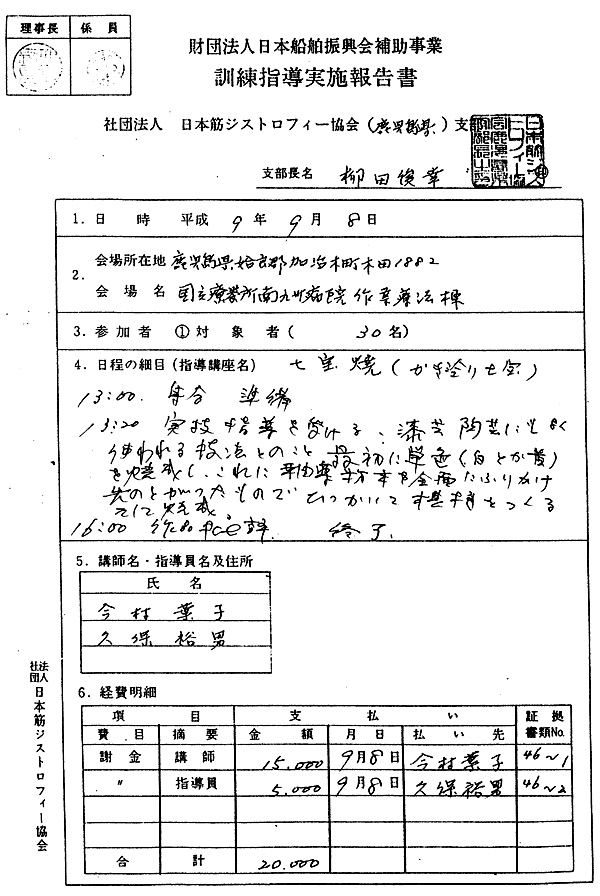 理事長 係員
財団法人日本船舶振興会補助事業
訓練指導実施報告書
社団法人 日本筋ジストロフィー協会(鹿児島県)支部
支部長名 柳田俊幸
1. 日 時 平成 9 年 9 月 8 日
2. 会場所在地 鹿児島県姶良郡加治木町木田1882
会場名 国立療養所南九州病院 作業療法棟
3. 参加者 ①対象者( 30名)
4. 日程の細目(指導講座名) 七宝焼(かき塗り七宝)
13:00. 集合 準備
13:20 実技指導を受ける、漆芸陶芸にもよく
使われる技法とのこと 最初に単色(白とか黄)
を焼成し、これに 粉末を全面にふりかけ
先のとがったもので ひっかいて模様をつくる
焼成
16:00 作品 終了
5. 講師名・指導員名及住所
氏 名
今村葉子
久保裕男
6. 経費明細
項 目 支 払 い 証拠書類No.
費目 摘要 金額 月日 払い先
謝金 講師 15.000 9月8日 今村葉子 46~1
〃 指導員 5.000 9月8日 久保裕男 46~2
合 計 20.000
社団法人 日本筋ジストロフィー協会